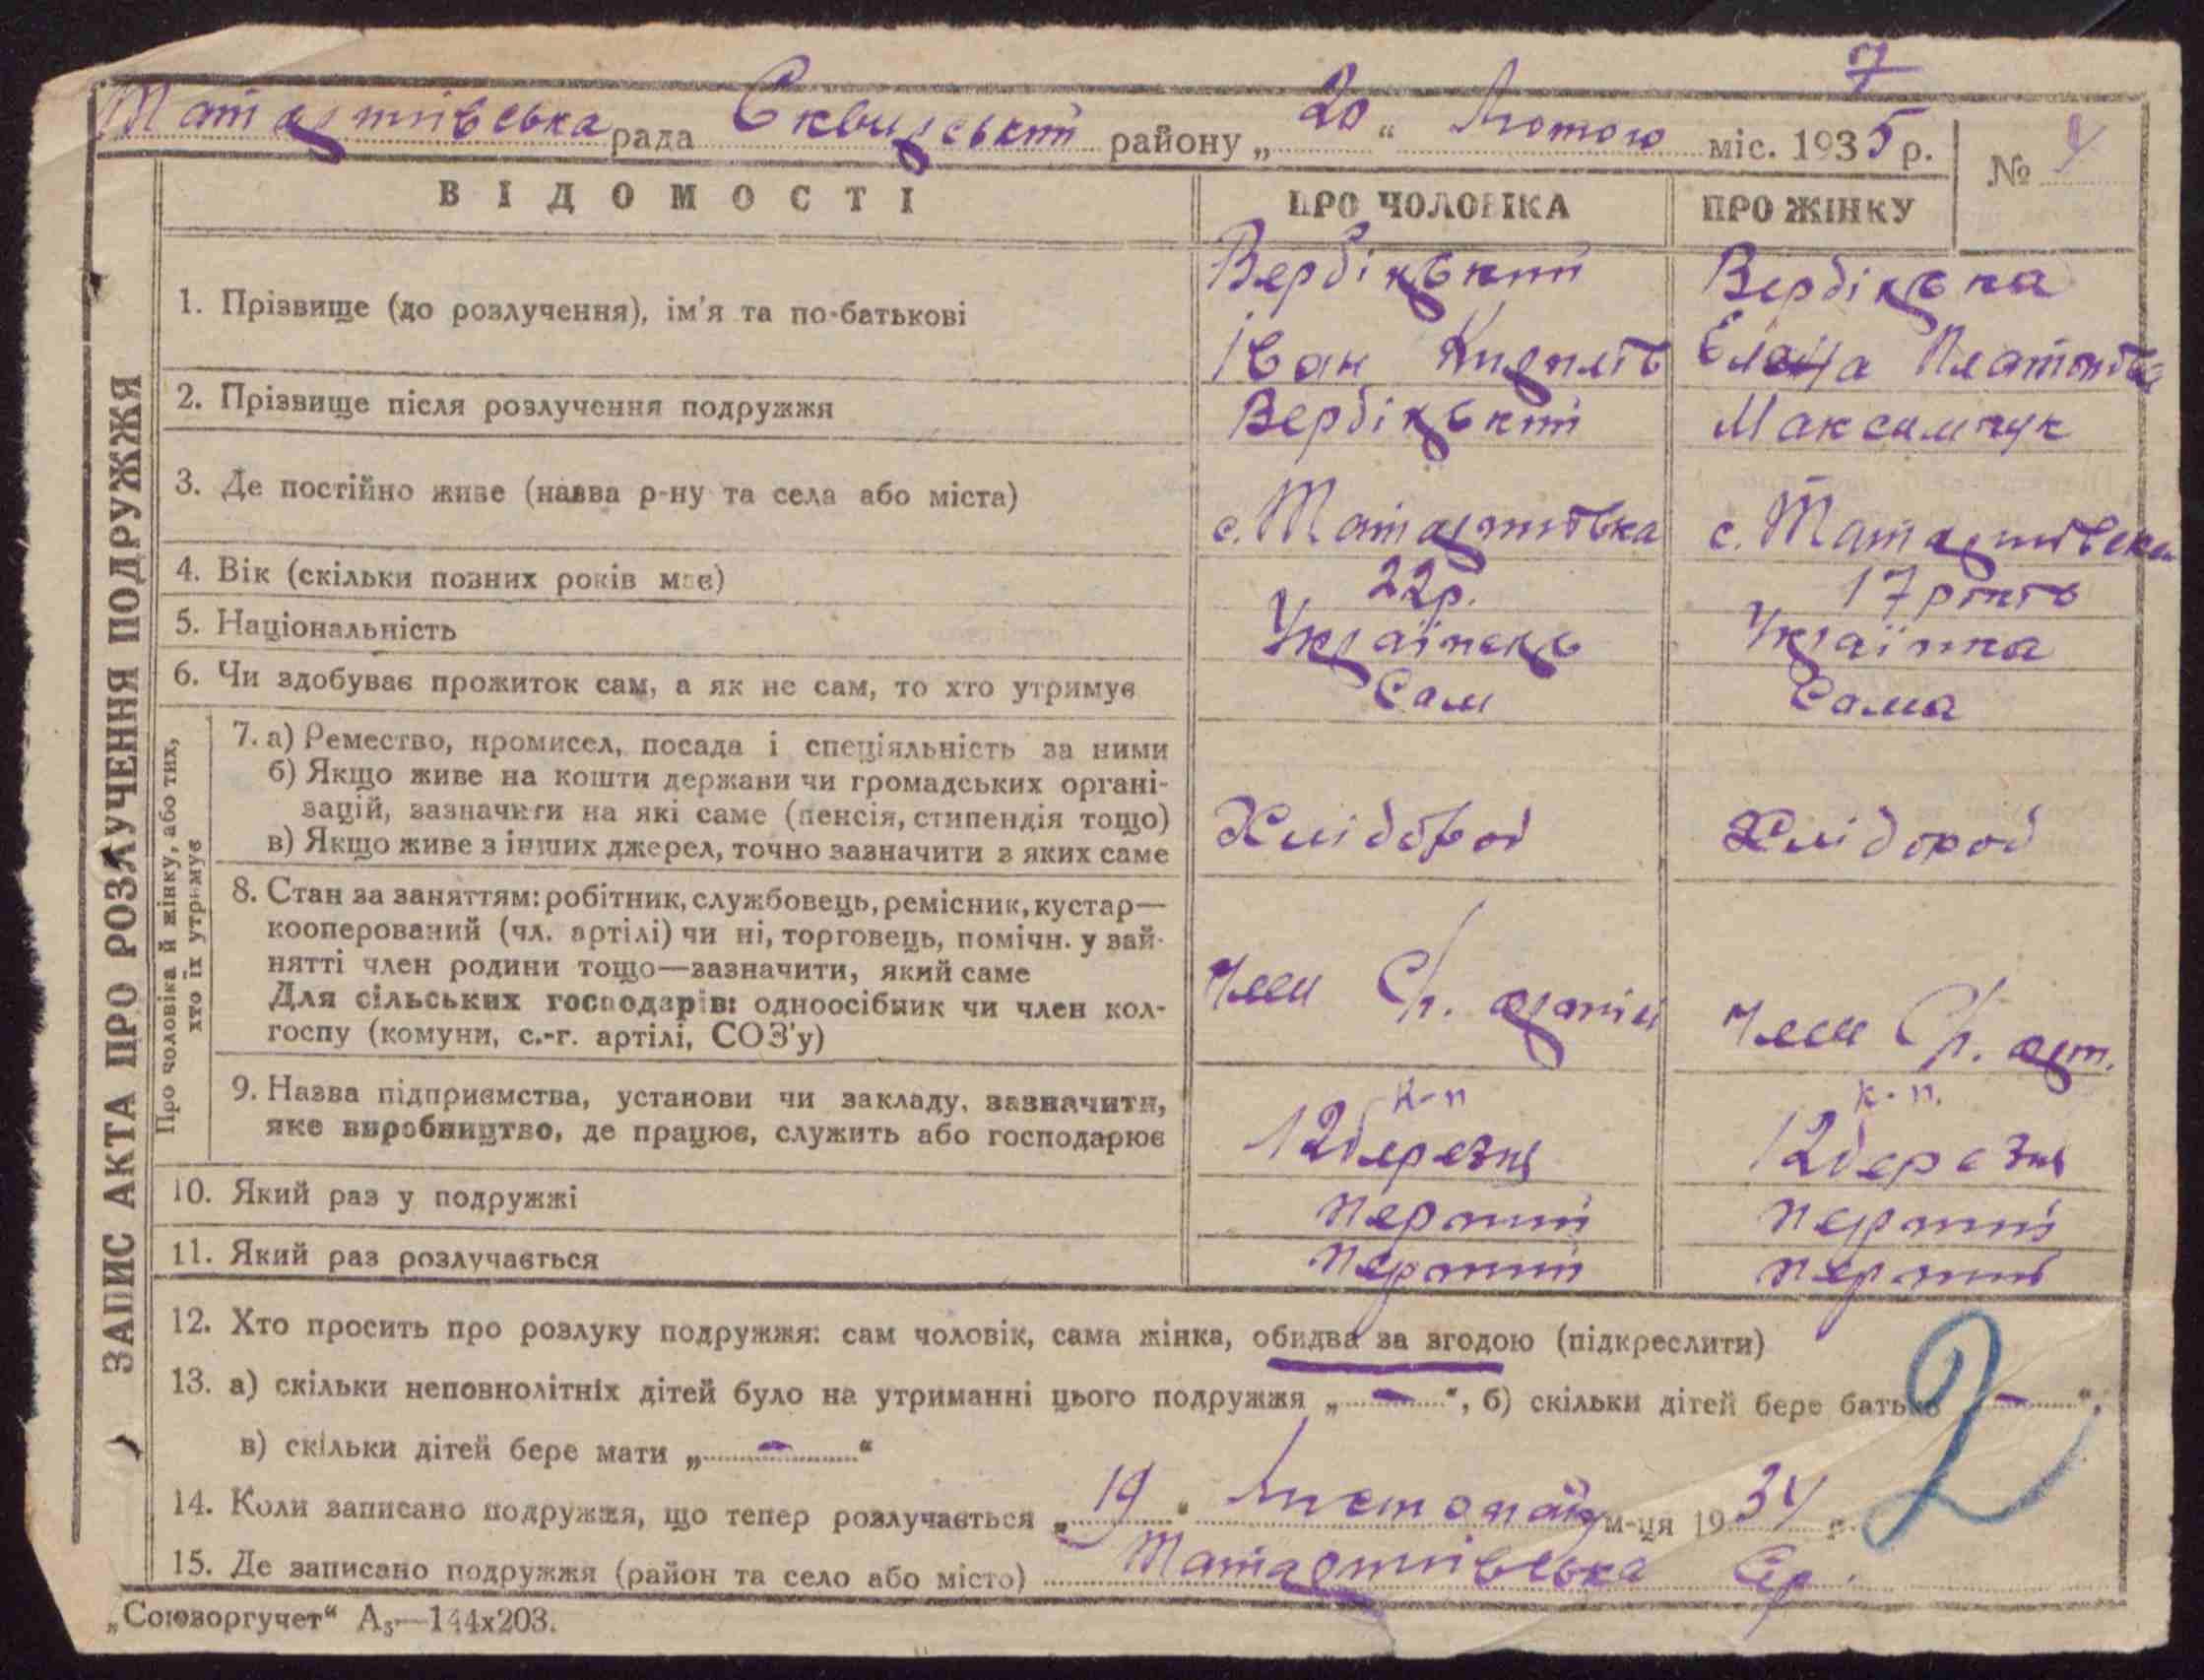 7
Татаринівська рада Сквирський району „ 20 “ Лютого міс. 1935 р.
№
ВІДОМОСТІ
ПРО ЧОЛОВІКА
ПРО ЖІНКУ
1. Прізвище (до розлучення), ім'я та по-батькові
Вербіцький
Іван
Вербіцька
Елена Платонівна
2. Прізвище після розлучення подружжя
Вербіцький
Максимчук
3. Де постійно живе (назва р-ну та села або міста)
с. Татаринівка
с. Татаринівська
4. Вік (скільки повних років має)
22р.
17 років
5. Національність
Українець
Українка
6. Чи здобуває прожиток сам, а як не сам, то хто утримує
Сам
Сама
Про чоловіка й жінку, або тих,
хто їх утримує
7. а) Ремество, промисел, посада і спеціяльність за ними
б) Якщо живе на кошти держави чи громадських органі-
зацій, зазначити на які саме (пенсія, стипендія тощо)
в) Якщо живе з інших джерел, точно зазначити з яких саме
Хлібороб
Хлібороб
8. Стан за заняттям: робітник, службовець, ремісник, кустар—
кооперований (чл. артілі) чи ні, торговець, помічн. у зай-
нятті член родини тощо—зазначити, який саме
Для сільських господарів: одноосібник чи член кол-
госпу (комуни, с.-г. артілі, СОЗ'у)
Член С/г. артілі
Член С/г. арт.
9. Назва підприємства, установи чи закладу, зазначити,
яке виробництво, де працює, служить або господарює
к-п
12 березня
к-п.
12 березня
10. Який раз у подружжі
перший
перший
11. Який раз розлучається
перший
перший
12. Хто просить про розлуку подружжя: сам чоловік, сама жінка, обидва за згодою (підкреслити)
13. а) скільки неповнолітніх дітей було на утриманні цього подружжя „ - “, б) скільки дітей бере батько „ - “,
в) скільки дітей бере мати „ - “
2
14. Коли записано подружжя, що тепер розлучається „ 19 “ Листопада м-ця 1934 р.
15. Де записано подружжя (район та село або місто) Татаринівська С/р.
„Союзоргучет“ А₅—144х203.
ЗАПИС АКТА ПРО РОЗЛУЧЕННЯ ПОДРУЖЖЯ